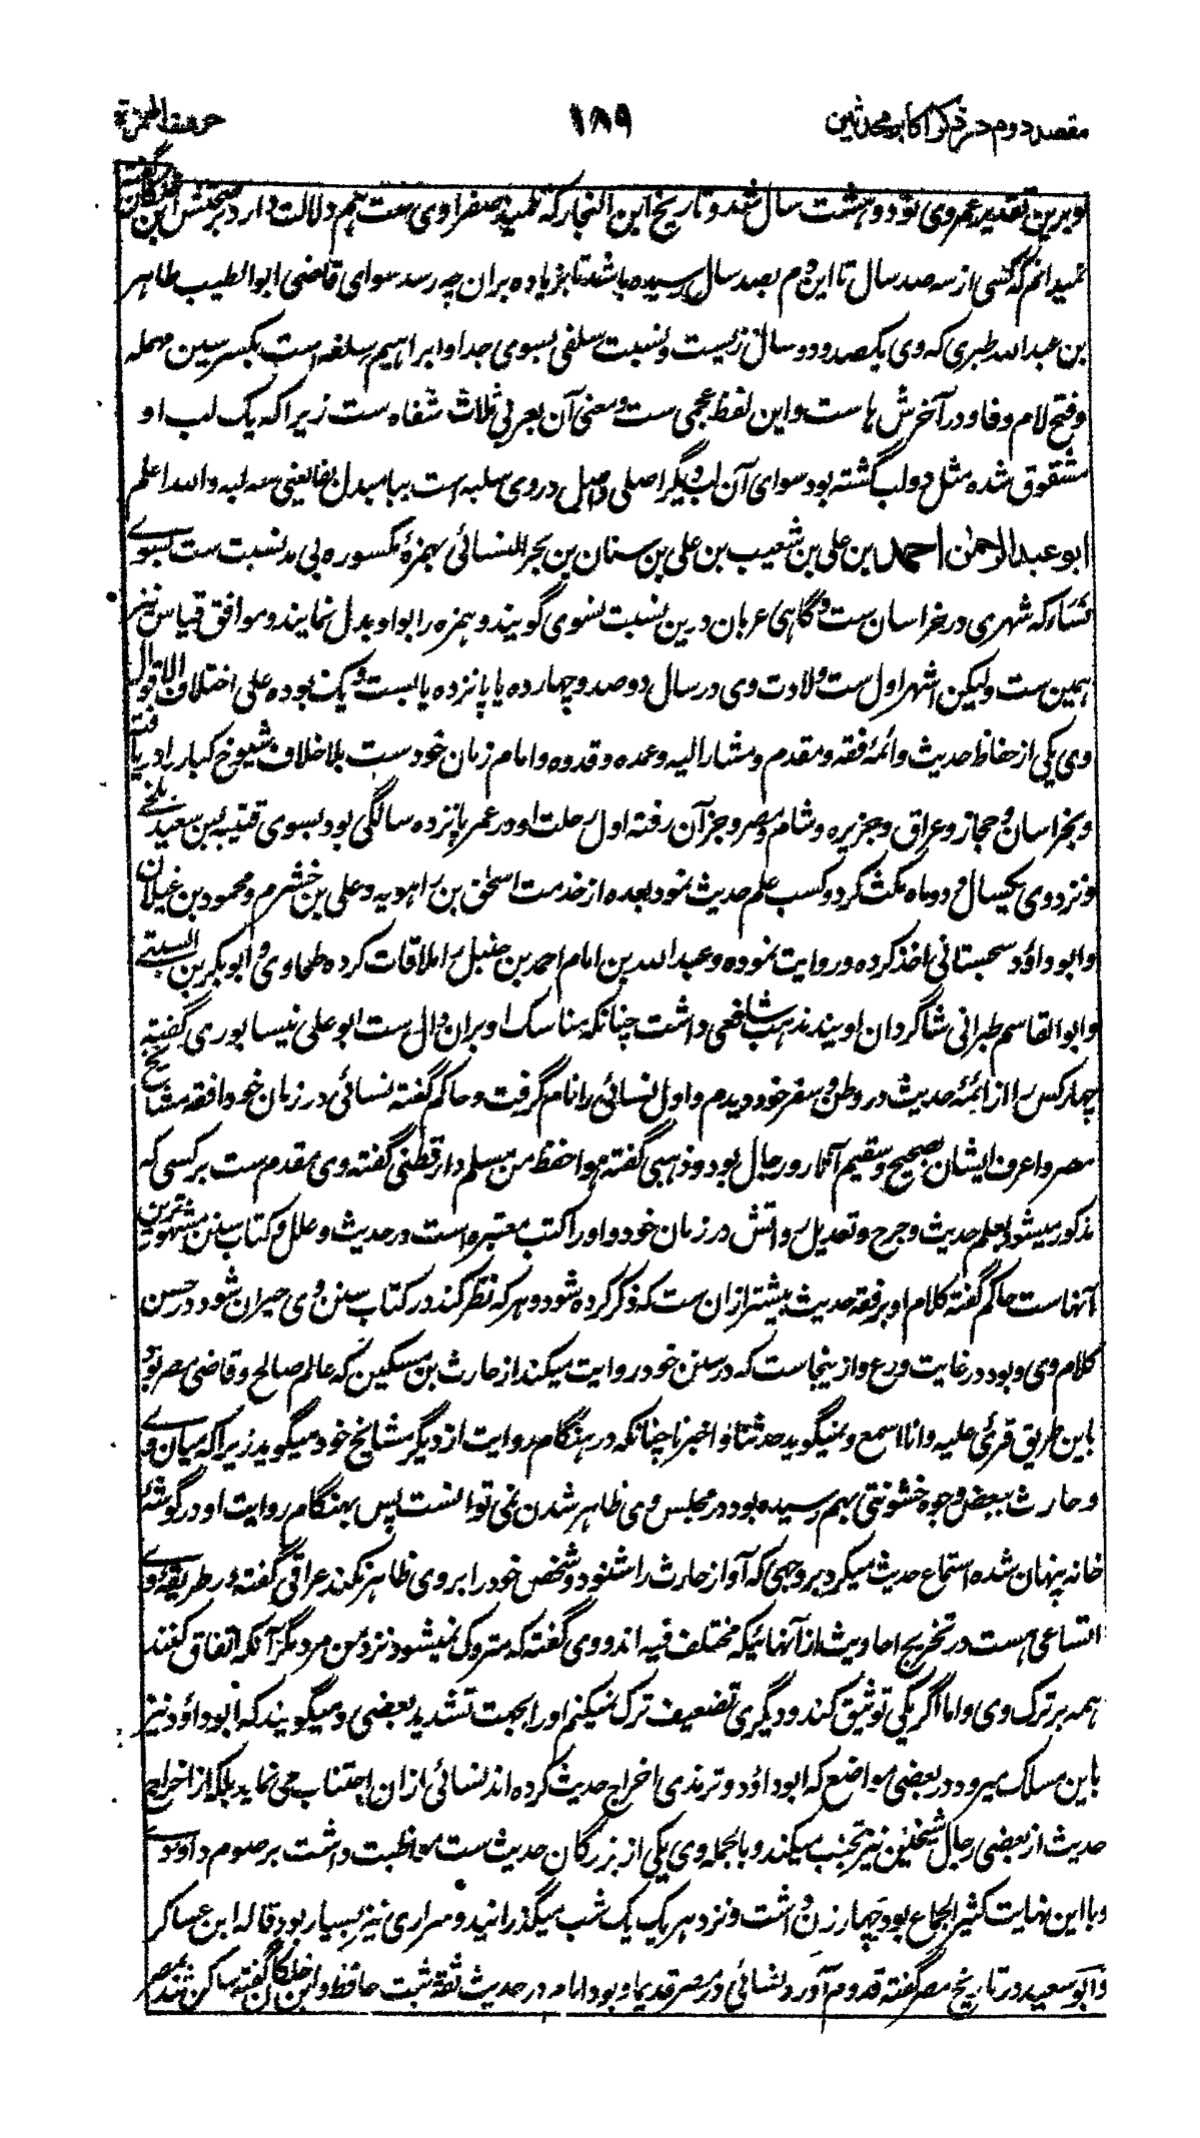 مقصد دوم در ذکر اکابر محدثین
۱۸۹
حرف الهمزة
و برین تقدیر عمر وی نود و هشت سال شد و تاریخ ابن النجار که تلمیذ صفراوی ست هم دلالت دارد بر صحتش ابن خلکان گفته
نمیدانم که کسی از سه صد سال تا این دم بصد سال رسیده باشد تا بزیاده بران چه رسد سوای قاضی ابو الطیب طاهر
بن عبد الله طبری که وی یکصد و دو سال زیست و نسبت سلفی بسوی جد او ابراهیم سلفه است بکسر سین مهمله
و فتح لام و فا و در آخرش ها ست و این لفظ عجمی ست و معنی آن بعربی ثلاث شفاه ست زیرا که یک لب او
مشقوق شده مثل دو لب گشته بود سوای آن لب دیگر اصلی و اصل در وی سلبه است ببا مبدل بفا یعنی سه لبه والله اعلم
ابو عبد الرحمن احمد بن علی بن شعیب بن علی بن سنان بن بحر النسائی بهمزهٔ مکسوره بی مد نسبت ست بسوے
نسا که شهری در خراسان ست و گاهی عربان درین نسبت نسوی گویند و همزه را بواو بدل نمایند و موافق قیاس نیز
همین ست ولیکن اشهر اول ست ولادت وی در سال دو صد و چهارده یا پانزده یا بست و یک بوده علی اختلاف الاقوال
وی یکی از حفاظ حدیث و ائمهٔ فقه و مقدم و مشار الیه و عمده و قدوه و امام زمان خودست بلا خلاف شیوخ کبار را دریافته
و بخراسان و حجاز و عراق و جزیره و شام و مصر و جز آن رفته اول رحلت او در عمر پانزده سالگی بود بسوی قتیبه بن سعید بلخے
و نزد وی یکسال و دو ماه مکث کرد و کسب علم حدیث نمود بعده از خدمت اسحق بن راهویه و علی بن خشرم و محمود بن غیلان
و ابو داؤد سجستانی اخذ کرده و روایت نموده و عبد الله بن امام احمد بن حنبل را ملاقات کرده طحاوی و ابو بکر بن السنے
و ابو القاسم طبرانی شاگردان اویند مذهب شافعی داشت چنانکه مناسک او بران دال ست ابو علی نیساپوری گفته
چهار کس را از ائمهٔ حدیث در وطن و سفر خود دیدم و اول نسائی را نام گرفت و حاکم گفته نسائی در زمان خود افقه مشایخ
مصر و اعرف ایشان بصحیح و سقیم آثار و رجال بود و ذهبی گفته هو احفظ من مسلم دارقطنی گفته وی مقدم ست بر کسی که
مذکور میشود بعلم حدیث و جرح و تعدیل رواتش در زمان خود و او را کتب معتبره است در حدیث و علل و کتاب سنن مشهورترین
آنها ست حاکم گفته کلام او بر فقه حدیث بیشتر ازان ست که ذکر کرده شود و هر که نظر کند در کتاب سنن وی حیران شود در حسن
کلام وی و بود در غایت ورع و ازینجا ست که در سنن خود روایت میکند از حارث بن مسکین که عالم صالح و قاضی مصر بود
باین طریق قرئی علیه و انا اسمع و نمیگوید حدثنا و اخبرنا چنانکه در هنگام روایت از دیگر مشایخ خود میگوید زیرا که میان وے
و حارث ببعض وجوه خشونتی بهم رسیده بود در مجلس وی ظاهر شدن نمی توانست پس بهنگام روایت او در گوشهٔ
خانه پنهان شده استماع حدیث میکرد بروجهی که آواز حارث را شنود و شخص خود را بر وی ظاهر نکند عراقی گفته در طریقهٔ وے
اتساعی هست در تخریج احادیث از آنهائیکه مختلف فیه اند و وی گفته که متروک نمیشود نزد من مرد مگر آنکه اتفاق کنند
همه بر ترک وی و اما اگر یکی توثیق کند و دیگری تضعیف ترک نمیکنم او را بجهت تشدید بعضی و میگویند که ابو داؤد نیز
باین مسلک میرود در بعضی مواضع که ابو داؤد و ترمذی اخراج حدیث کرده اند نسائی ازان اجتناب می نماید بلکه از اخراج
حدیث از بعضی رجال شیخین نیز تجنب میکند و بالجمله وی یکی از بزرگان حدیث ست مواظبت داشت بر صوم داؤدے
و با این نهایت کثیر الجماع بود چهار زن داشت و نزد هر یک یک شب میگذرانید و سراری نیز بسیار بود قاله ابن عساکر
و ابو سعید در تاریخ مصر گفته قدوم آورد نسائی در مصر قدیما و بود امام در حدیث ثقه ثبت حافظ و ابن خلکان گفته ساکن شد بمصر